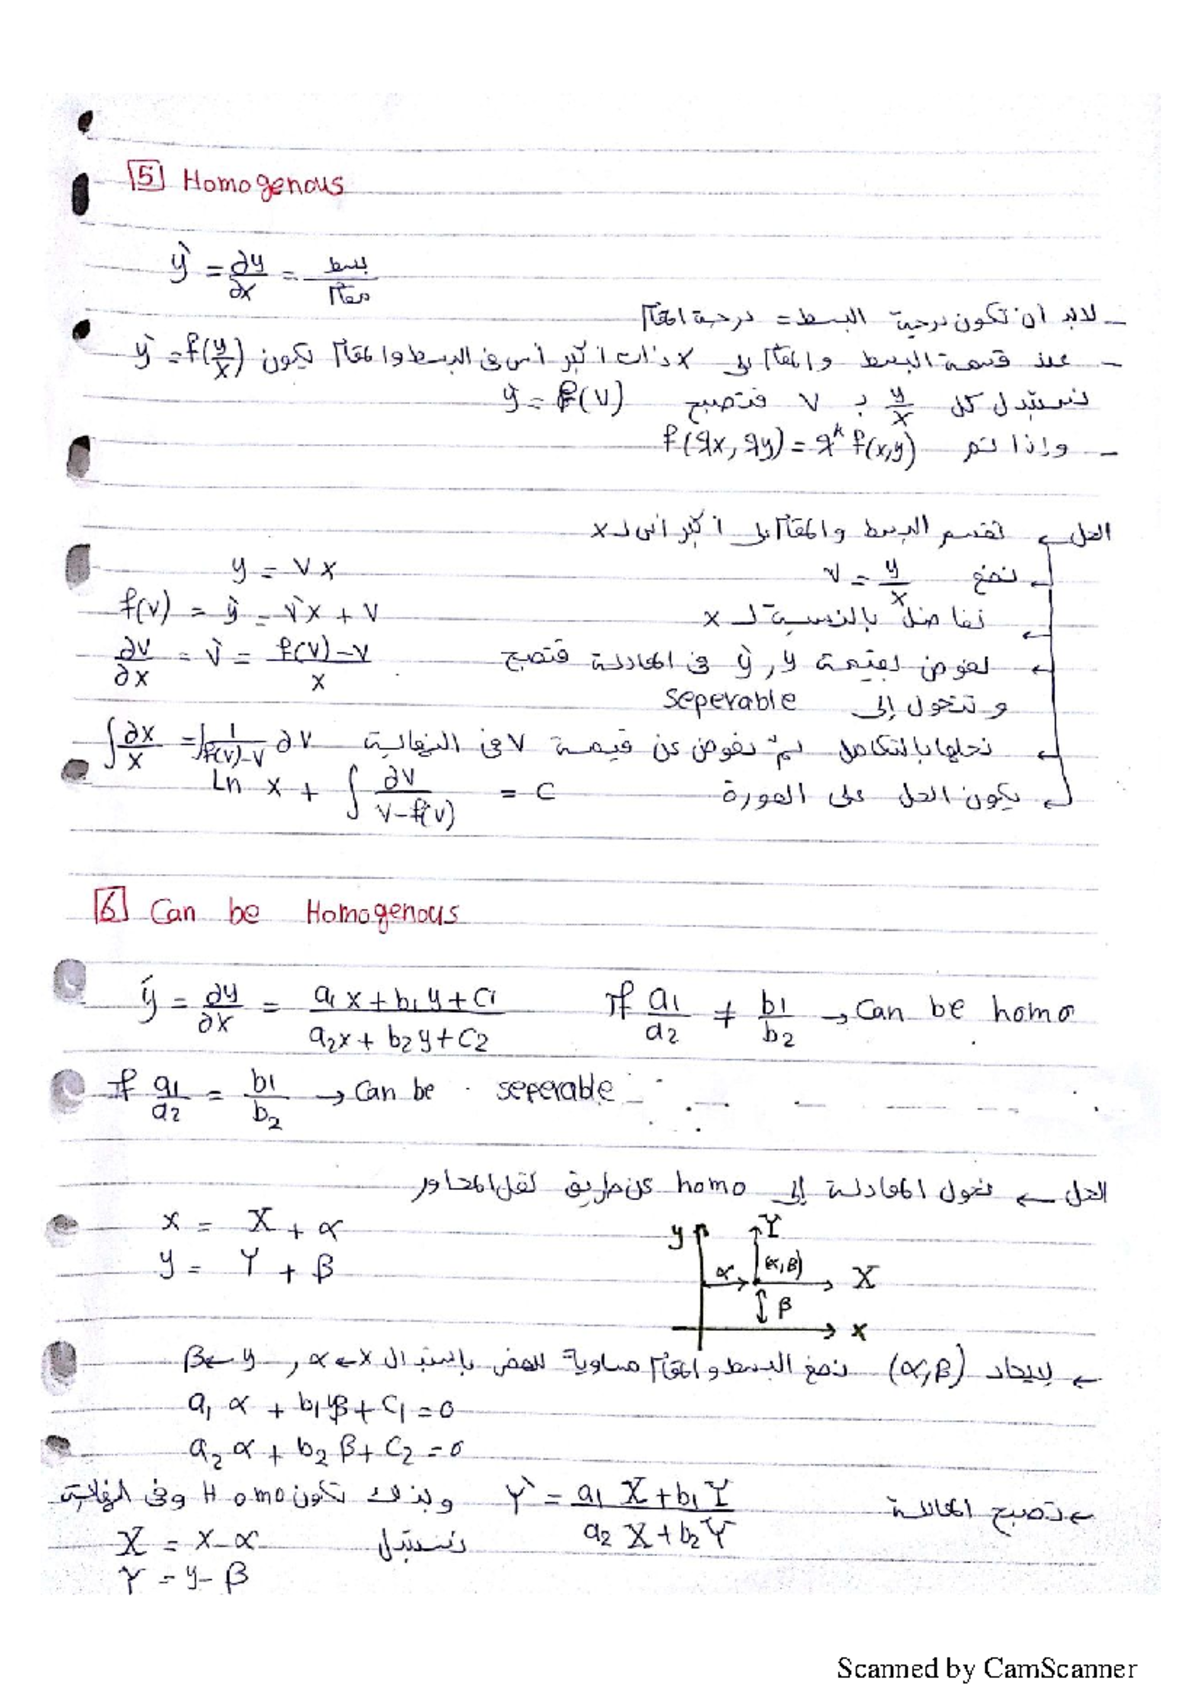 5 Homogenous
y' = ∂y/∂x = بسط/مقام
- لابد أن تكون درجة البسط = درجة المقام
- عند قسمة البسط والمقام على x ذات أكبر أس فى البسط والمقام يكون y' = f(y/x)
نستبدل كل y/x بـ v فتصبح y' = f(v)
- وإذا تم f(qx, qy) = q^k f(x,y)
الحل ← نقسم البسط والمقام على أكبر أس لـ x
← نضع v = y/x y = vx
← نفاضل بالنسبة لـ x f(v) = y' = v'x + v
← نعوض بقيمة y, y' فى المعادلة فتصبح ∂v/∂x = v' = f(v)-v/x
و تتحول إلى seperable
← نحلها بالتكامل ثم نعوض عن قيمة v فى النهاية ∫∂x/x = ∫1/f(v)-v ∂v
← يكون الحل على الصورة Ln x + ∫∂v/v-f(v) = c
6 Can be Homogenous
y' = ∂y/∂x = a1x+b1y+c1/a2x+b2y+c2 If a1/a2 ≠ b1/b2 → Can be homo
If a1/a2 = b1/b2 → Can be seperable
الحل ← نحول المعادلة إلى homo عن طريق نقل المحاور
x = X + α
y = Y + β
y Y
α (α,β) X
β
x
← لايجاد (α,β) نضع البسط والمقام مساوية للصفر باستبدال x ← α, y ← β
a1 α + b1 β + c1 = 0
a2 α + b2 β + c2 = 0
← تصبح المعادلة Y' = a1 X + b1 Y/a2 X + b2 Y وبذلك تكون Homo وفى النهاية
نستبدل X = x-α
Y = y-β
Scanned by CamScanner